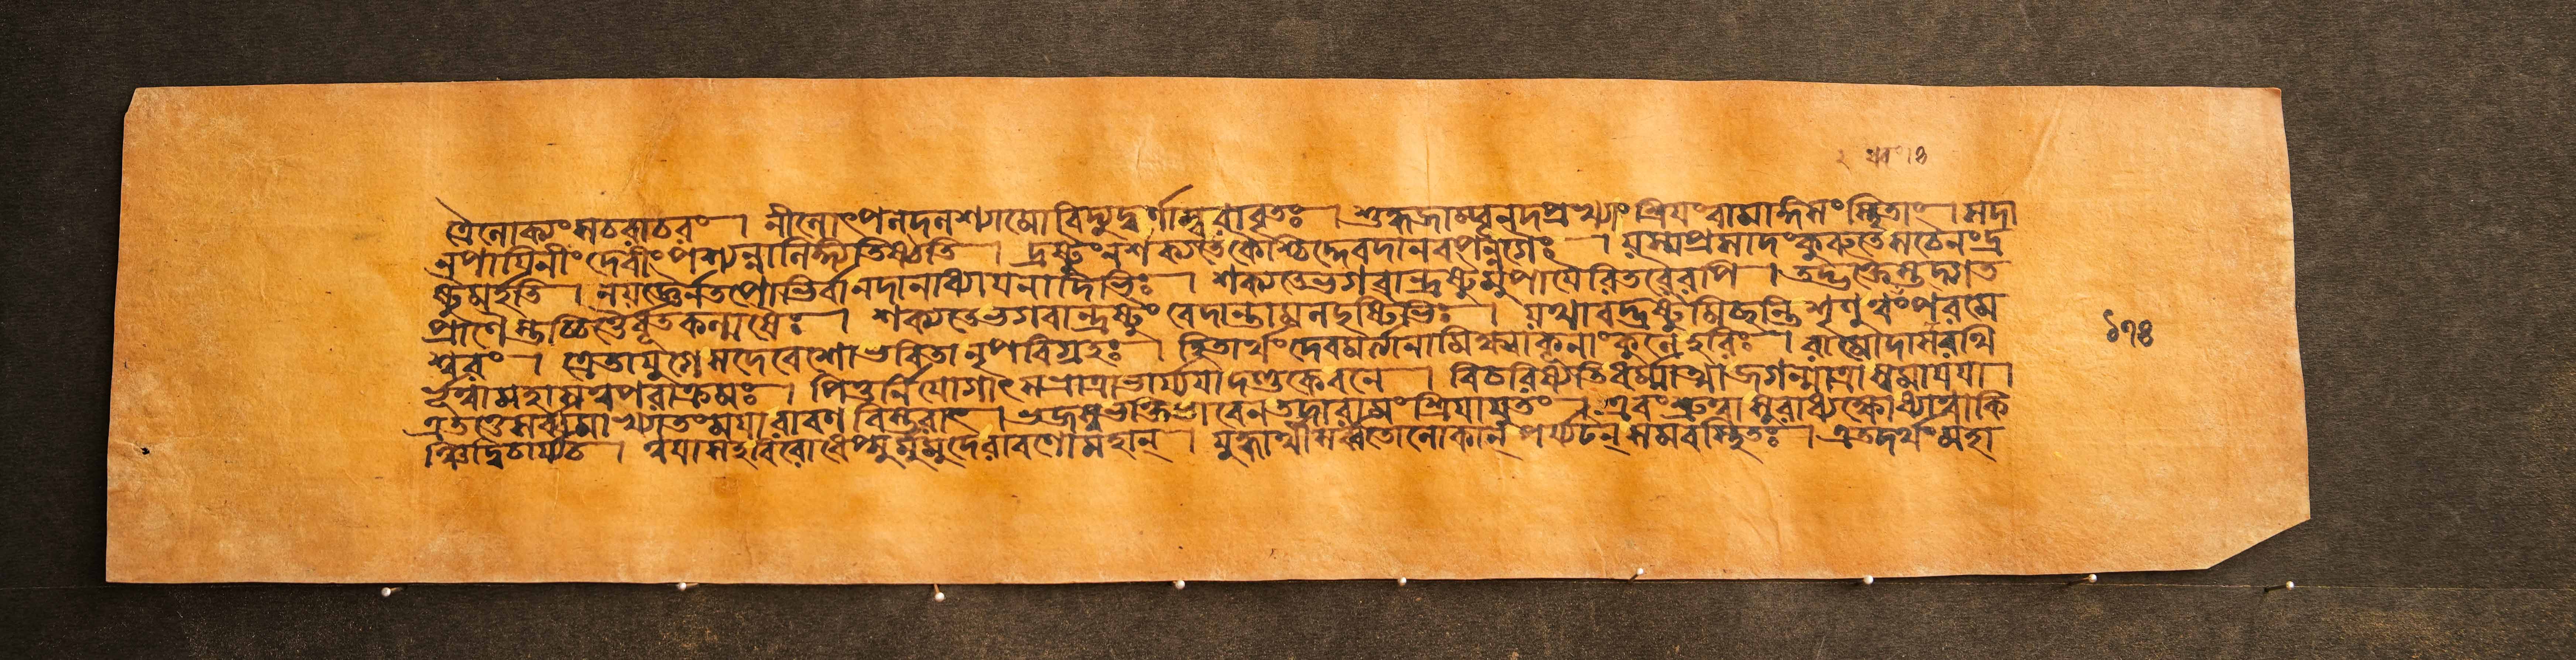 ত্রৈলোক্যংসচরাচরং । নীলোৎপলদলশ্যামোবিদ্যুদ্বর্ণাম্বরাবৃতঃ । শুদ্ধজাম্বূনদপ্রখ্যাং শ্রিয়ংবামাঙ্কসংস্থিতাং । সদা
নপায়িনীংদেবীংপশ্যন্নালিঙ্গ্যতিষ্ঠতি । দ্রষ্টুংনশক্যতেকৈশ্চিদ্দেবদানবপন্নগৈঃ । যস্যপ্রসাদংকুরুতেসচৈনংদ্র
ষ্টুমর্হতি । নযজ্ঞৈর্নতপোভির্বানদানাধ্যয়নাদিভিঃ । শক্যতেভগবান্দ্রষ্টুমুপায়ৈরিতরৈরপি । তদ্ভক্তৈস্তদ্গত
প্রাণৈস্তচ্চিত্তৈর্ধূতকল্মষৈঃ । শক্যতেভগবান্দ্রষ্টুং বেদান্তামলদৃষ্টিভিঃ । যথাবদ্দ্রষ্টুমিচ্ছন্তিশৃণুত্বংপরমে
শ্বরং । ত্রেতাযুগেসদেবেশোভবিতানৃপবিগ্রহঃ । হিতার্থংদেবমর্ত্যানামিক্ষ্বাকূনাংকুলেহরিঃ । রামোদাশরথি
র্ভূত্বামহাসত্ত্বপরাক্রমঃ । পিতুর্নিয়োগাৎসভ্রাত্রাভার্য্যয়াদণ্ডকেবনে । বিচরিষ্যতিধর্ম্মাত্মাজগন্মাত্রাস্বমায়য়া ।
এতত্তেসর্ব্বমাখ্যাতংময়ারাবণবিস্তরাৎ । ভজস্বভক্তিভাবেনতদারামংশ্রিয়াযুতং । এবংশ্রুত্বাসুরাধ্যক্ষোধ্যাত্বাকি
ঞ্চিদ্বিচার্য্যচ । ত্বয়াসহবিরোধেপ্সুর্মুমুদেরাবণোমহান্ । যুদ্ধার্থীসর্ব্বতোলোকান্ পর্য্যটন্ সমবস্থিতঃ । এতদর্থংমহা
১৭৪